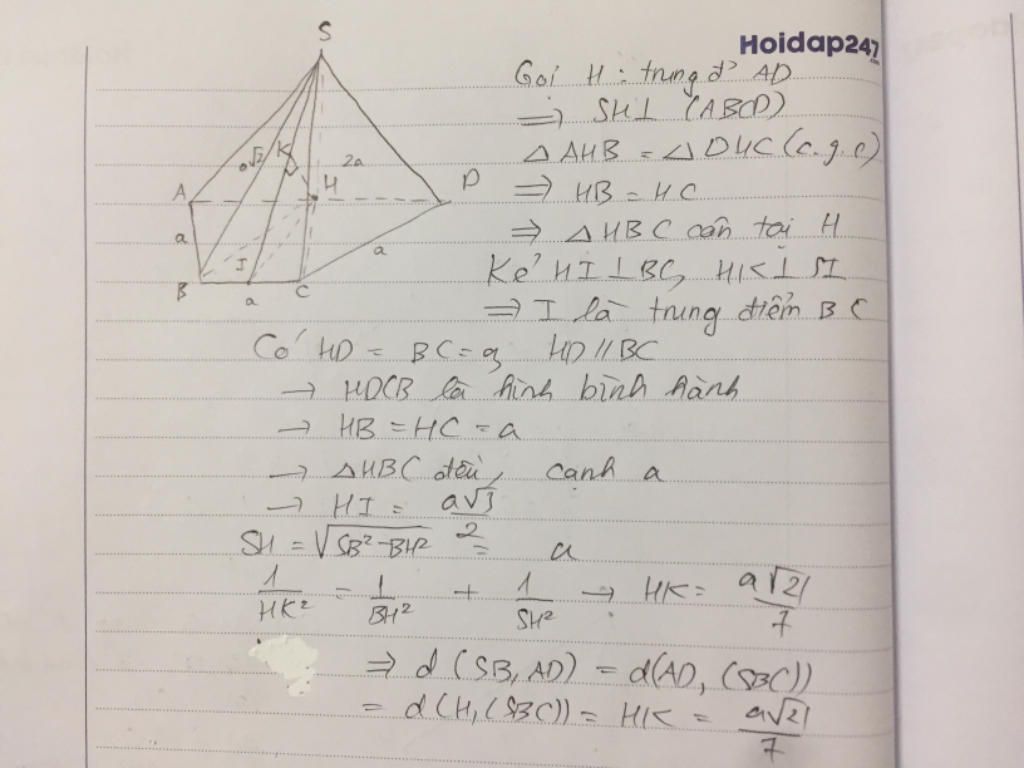 Hoidap247
.com
S
Gọi H : trung đ² AD
=> SH ⊥ (ABCD)
Δ AHB = Δ DHC (c.g.c)
=> HB = HC
=> Δ HBC cân tại H
Kẻ HI ⊥ BC, HK ⊥ SI
=> I là trung điểm BC
a√2 K 2a
A H D
a I a
B a C
Có HD = BC = a, HD // BC
→ HDCB là hình bình hành
→ HB = HC = a
→ Δ HBC đều, cạnh a
→ HI = a√3/2
SH = √(SB² - BH²) = a
1/HK² = 1/BH² + 1/SH² → HK = a√21/7
=> d (SB, AD) = d(AD, (SBC))
= d(H, (SBC)) = HK = a√21/7